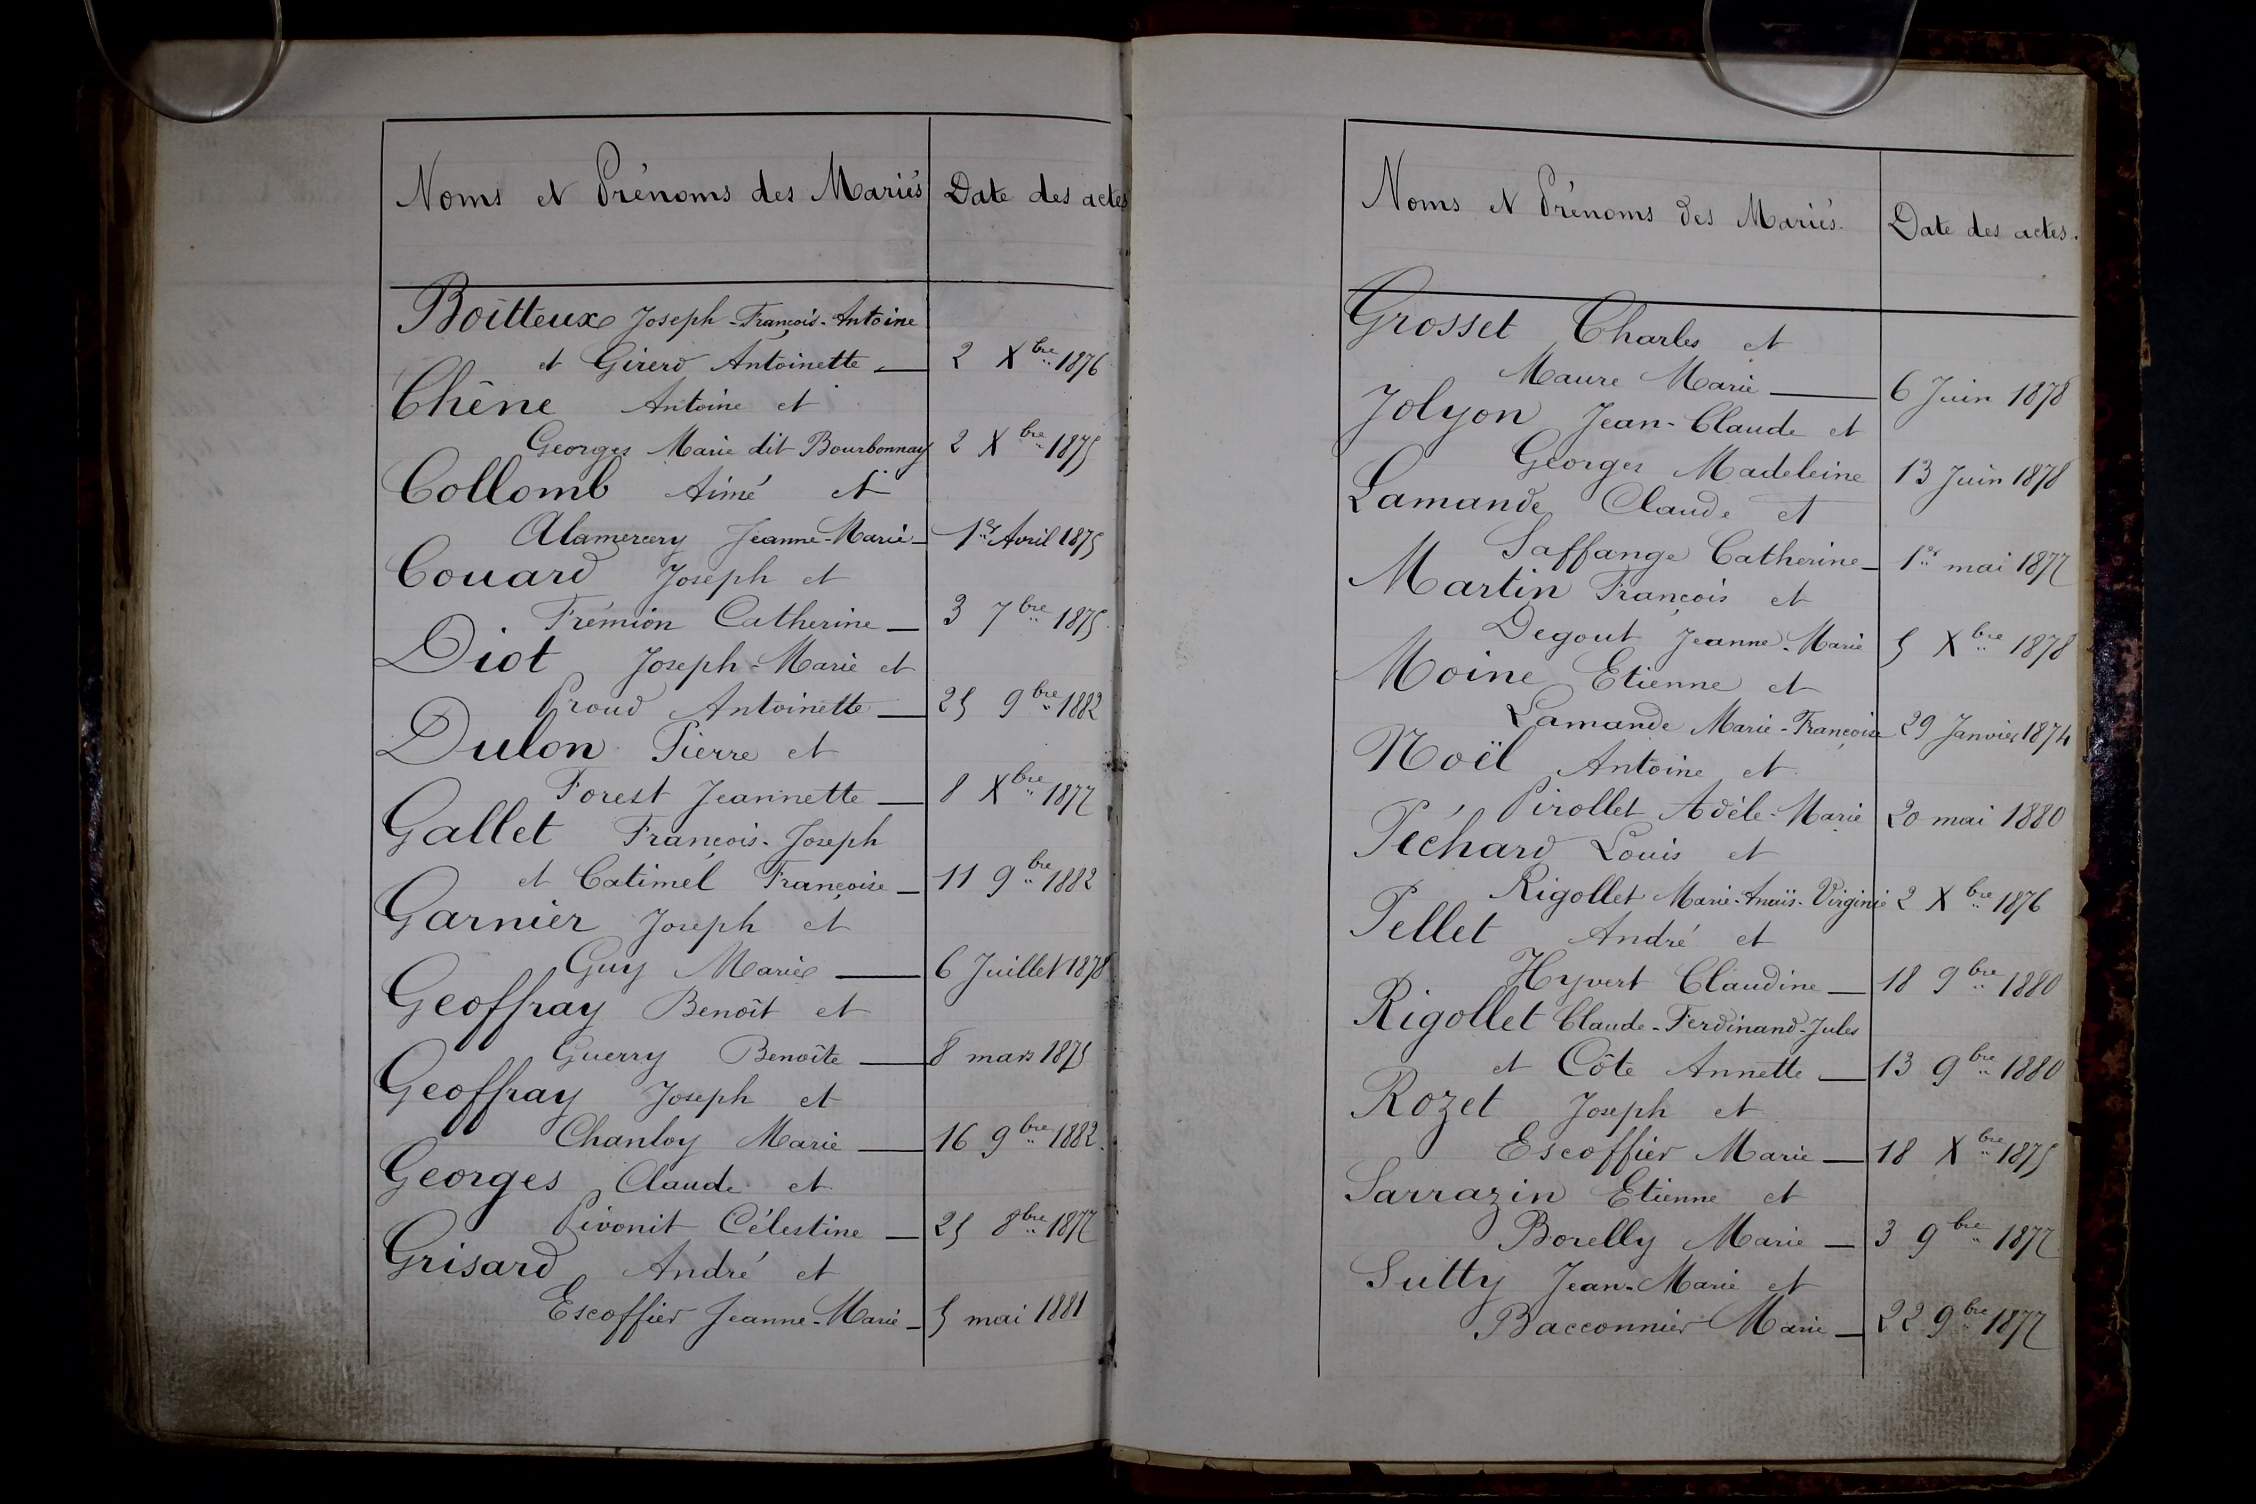 Noms et Prénoms des Mariés Date des actes
Boitteux Joseph-François-Antoine
et Girerd Antoinette — 2 Xbre 1876
Chêne Antoine et
Georges Marie dit Bourbonnay 2 Xbre 1875
Collomb Aimé et
Alamercery Jeanne-Marie — 1er Avril 1875
Couard Joseph et
Frémion Catherine — 3 7bre 1875
Diot Joseph-Marie et
Proud Antoinette — 25 9bre 1882
Dulon Pierre et
Forest Jeannette — 8 Xbre 1877
Gallet François-Joseph
et Catimel Françoise — 11 9bre 1882
Garnier Joseph et
Guy Marie — 6 Juillet 1878
Geoffray Benoît et
Guerry Benoîte — 8 mars 1875
Geoffray Joseph et
Chanloy Marie — 16 9bre 1882.
Georges Claude et
Pivonit Célestine — 25 8bre 1877
Grisard André et
Escoffier Jeanne-Marie — 5 mai 1881
Noms et Prénoms des Mariés. Date des actes.
Grosset Charles et
Maure Marie — 6 Juin 1878
Jolyon Jean-Claude et
Georges Madeleine 13 Juin 1878
Lamande Claude et
Saffange Catherine — 1er mai 1877
Martin François et
Degout Jeanne-Marie 5 Xbre 1878
Moine Etienne et
Lamande Marie-Françoise 29 Janvier 1874
Noël Antoine et
Pirollet Adèle-Marie 20 mai 1880
Péchard Louis et
Rigollet Marie-Anaïs-Virginie 2 Xbre 1876
Pellet André et
Hyvert Claudine — 18 9bre 1880
Rigollet Claude-Ferdinand-Jules
et Côte Annette — 13 9bre 1880
Rozet Joseph et
Escoffier Marie — 18 Xbre 1875
Sarrazin Etienne et
Borelly Marie — 3 9bre 1877
Sutty Jean-Marie et
Bacconnier Marie — 22 9bre 1877